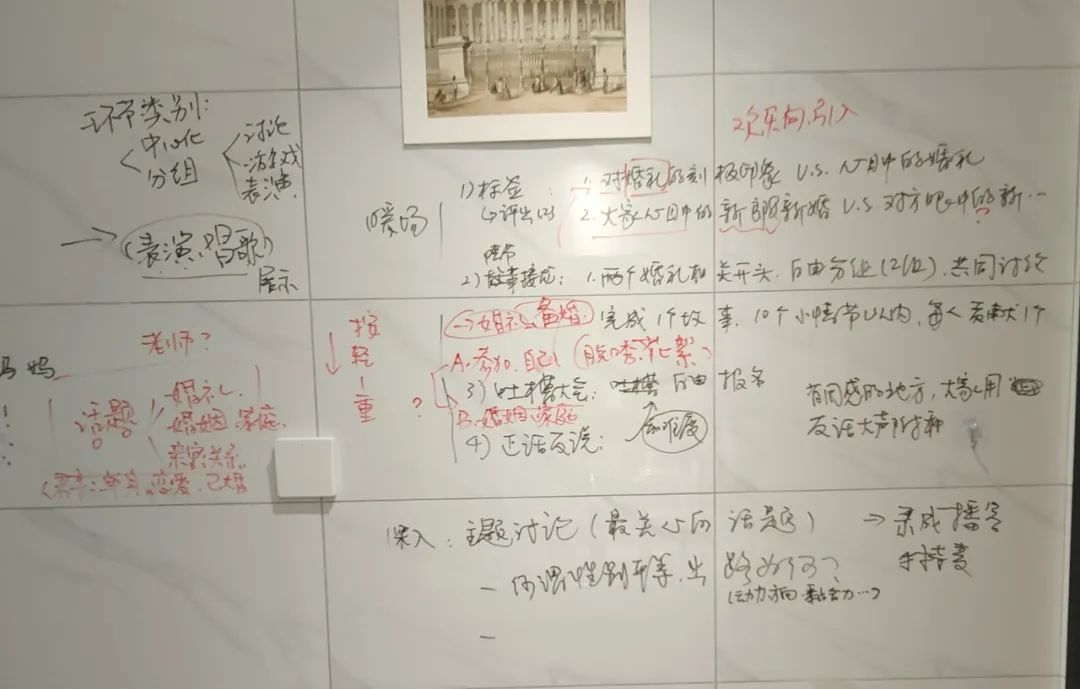 环节类别:
中心化
分组
讨论
游戏
表演
(表演、唱歌)
展示
欢乐向、引入
暖场
1) 标签: 1. 对婚礼的刻板印象 V.S. 心目中的婚礼
评出 2. 大家心目中的新郎新婚 V.S. 对方眼中的新…?
2) 故事接龙: 1. 两个婚礼相关开头, 自由分组(2组), 共同讨论
→婚礼、备婚. 完成1个故事, 10个小情节以内, 每人贡献1个
按轻-重
A. 参加、自己 (脱口秀、花絮)
?
3) 吐槽大会: 吐槽 自由报名
B. 婚姻、家庭
4) 正话反说: 加难度
有同感的地方, 大家用
反话大声附和
老师?
妈妈
话题
婚礼、
婚姻、家庭.
亲密关系.
单身、恋爱、已婚
深入: 主题讨论 (最关心的话题) → 录成播客
手持麦
- 何谓性别平等, 出路如何?
(动力方向、黏合力…?)
-